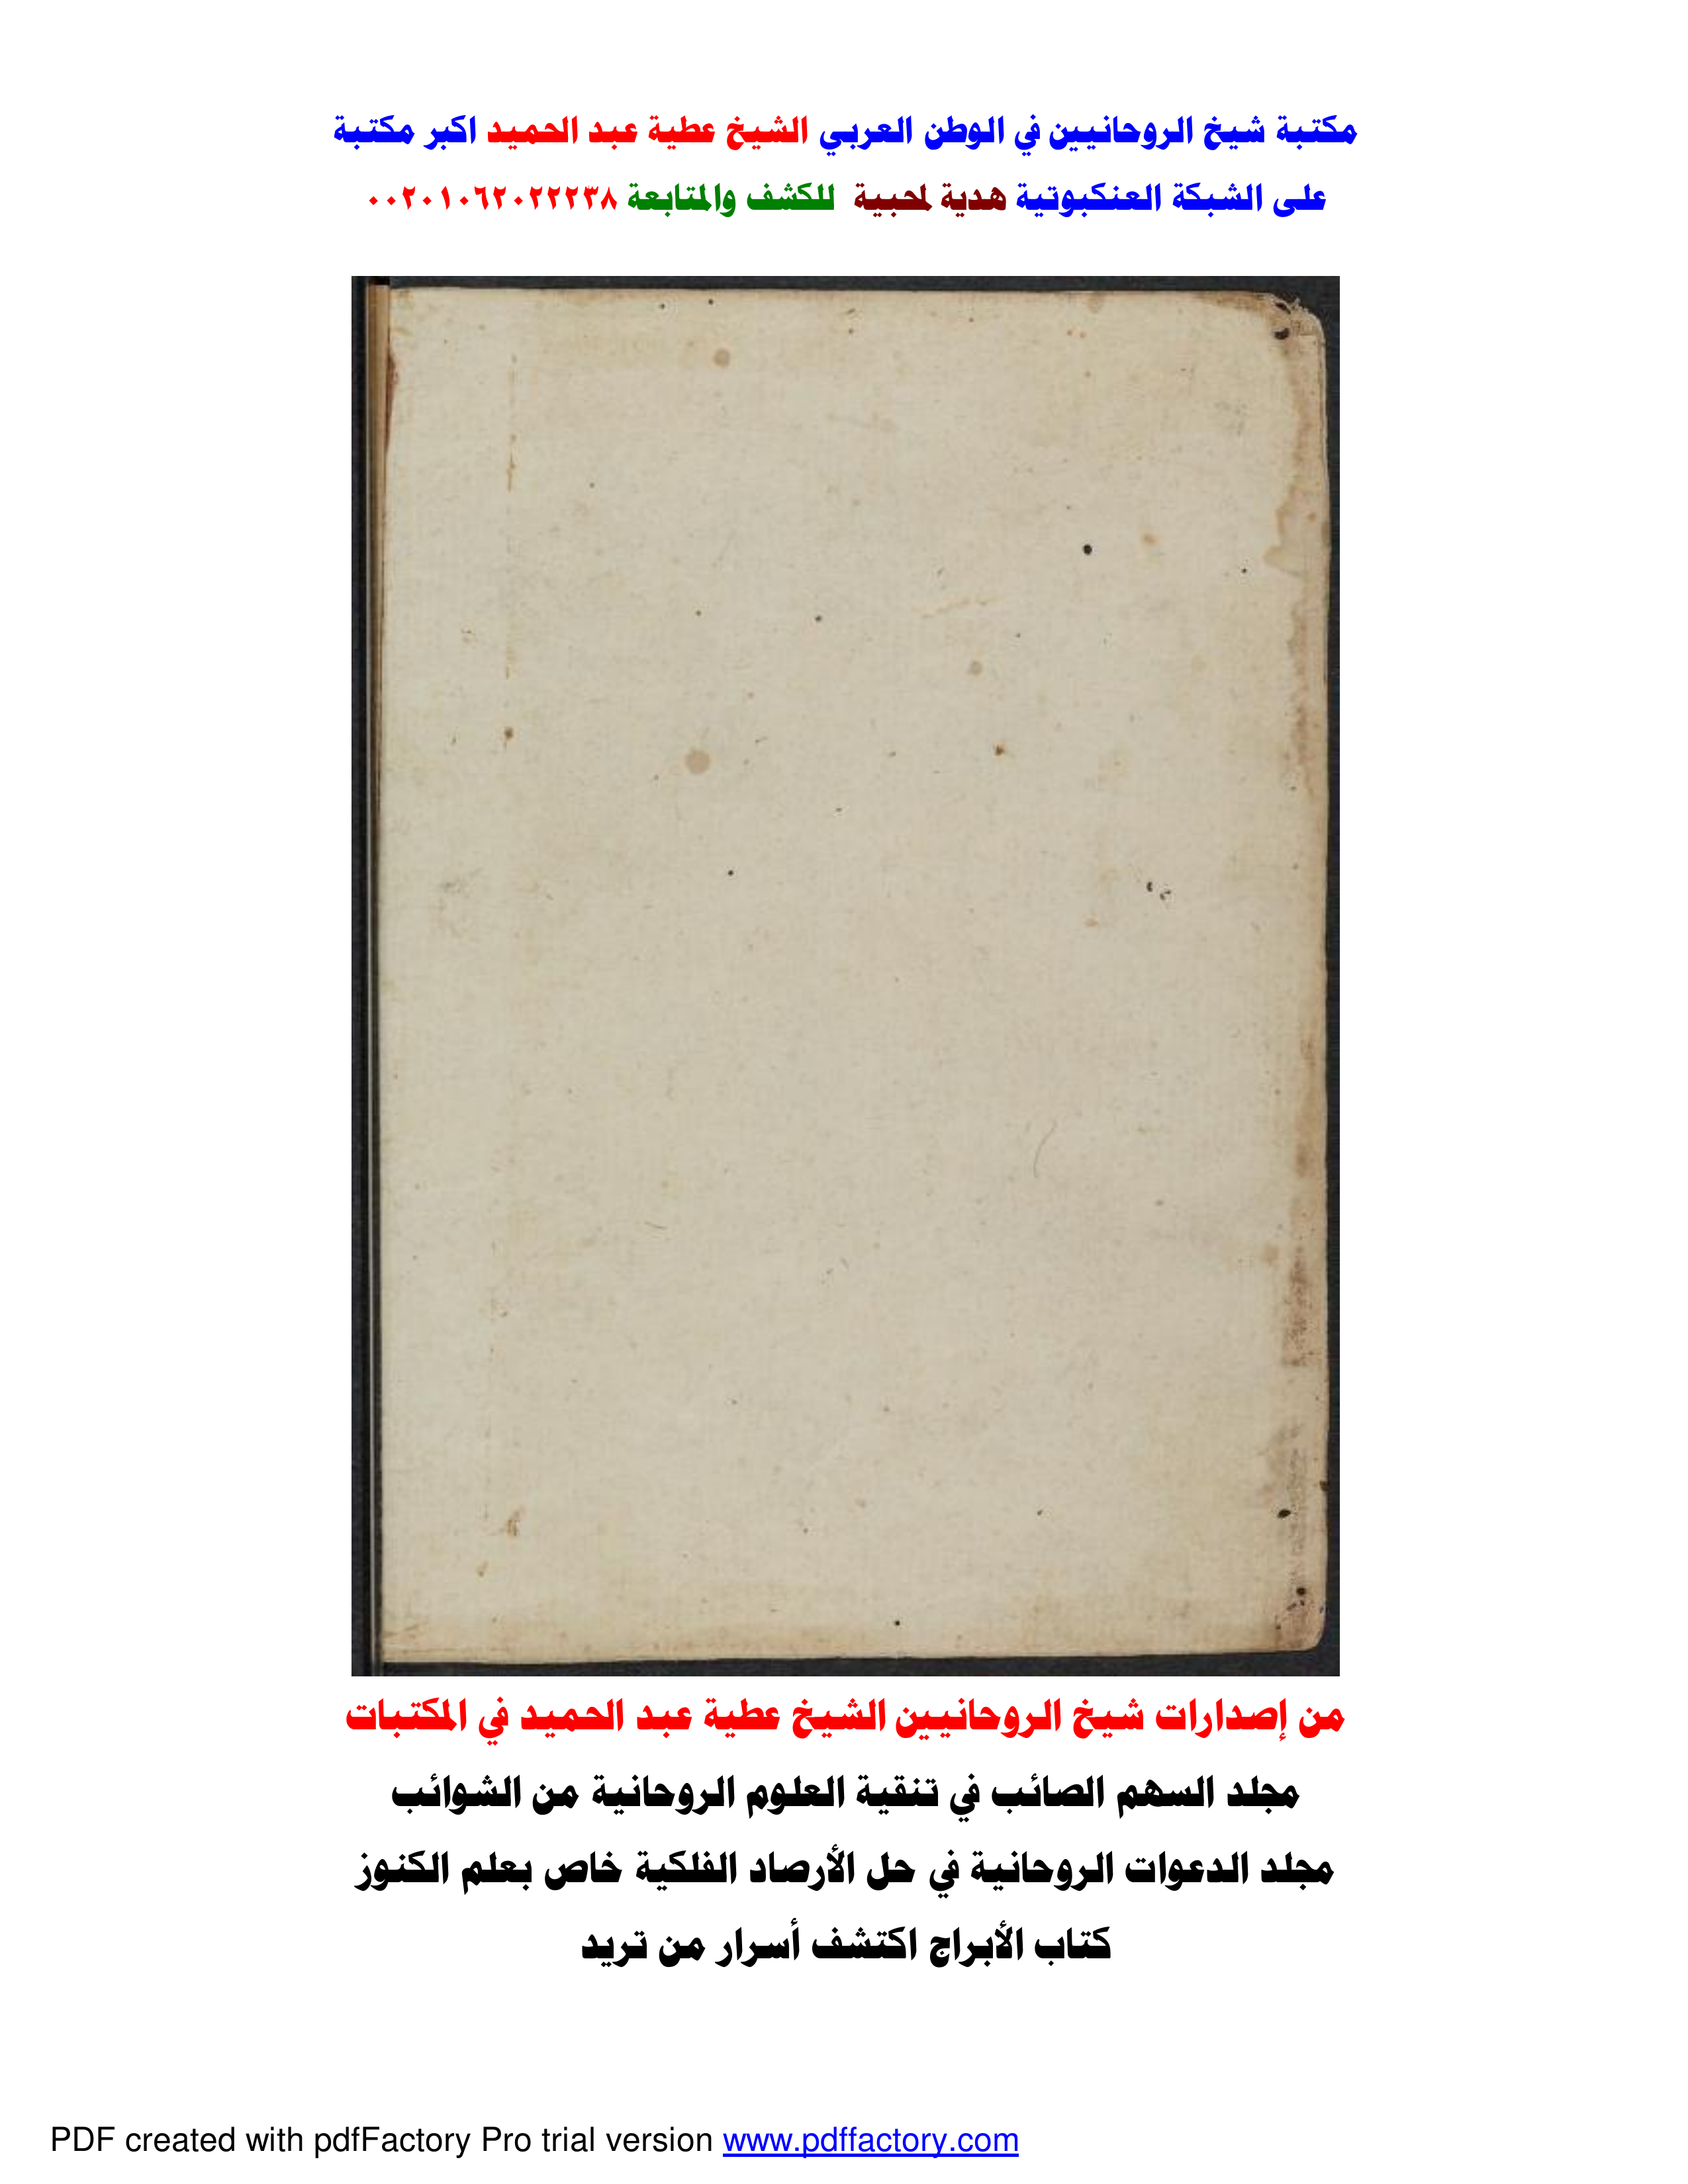 مكتبة شيخ الروحانيين في الوطن العربي الشيخ عطية عبد الحميد اكبر مكتبة
على الشبكة العنكبوتية هدية لمحبية للكشف والمتابعة ٠٠٢٠١٠٦٢٠٢٢٢٣٨
من إصدارات شيخ الروحانيين الشيخ عطية عبد الحميد في المكتبات
مجلد السهم الصائب في تنقية العلوم الروحانية من الشوائب
مجلد الدعوات الروحانية في حل الأرصاد الفلكية خاص بعلم الكنوز
كتاب الأبراج اكتشف أسرار من تريد
PDF created with pdfFactory Pro trial version www.pdffactory.com